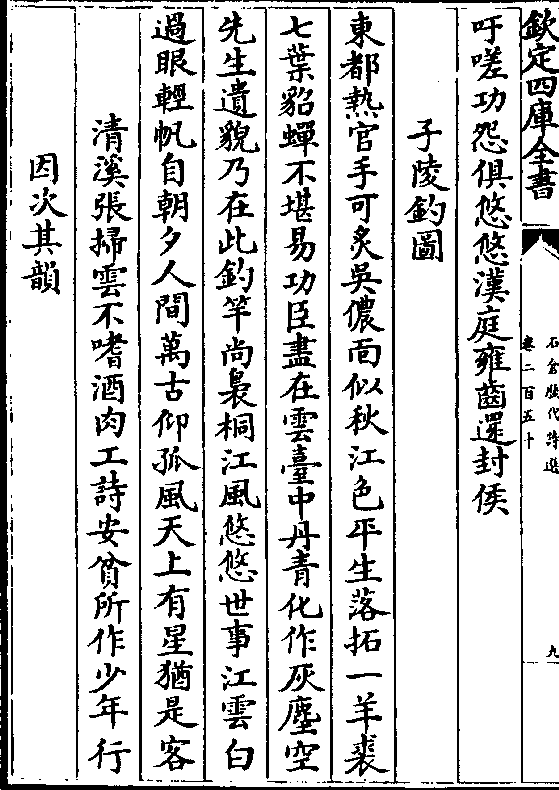 欽定四庫全書
石倉歷代詩選
卷二百五十
九
吁嗟功怨俱悠悠漢庭雍齒還封侯
子陵釣圖
東都熱官手可炙吳儂面似秋江色平生落拓一羊裘
七葉貂蟬不堪易功臣盡在雲臺中丹青化作灰塵空
先生遺貌乃在此釣竿尚裊桐江風悠悠世事江雲白
過眼輕帆自朝夕人間萬古仰孤風天上有星猶是客
清溪張掃雲不嗜酒肉工詩安貧所作少年行
因次其韻